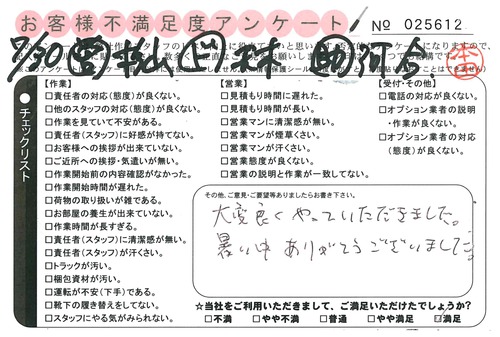 お客様不満足度アンケート
No 025612
チェックリスト
【作業】
□責任者の対応(態度)が良くない。
□他のスタッフの対応(態度)が良くない。
□作業を見ていて不安がある。
□責任者(スタッフ)に好感が持てない。
□お客様への挨拶が出来ていない。
□ご近所への挨拶・気遣いが無い。
□作業開始前の内容確認がなかった。
□作業開始時間が遅れた。
□荷物の取り扱いが雑である。
□お部屋の養生が出来ていない。
□作業時間が長すぎる。
□責任者(スタッフ)に清潔感が無い。
□責任者(スタッフ)が汗くさい。
□トラックが汚い。
□梱包資材が汚い。
□運転が不安(下手)である。
□靴下の履き替えをしてない。
□スタッフにやる気がみられない。
【営業】
□見積もり時間に遅れた。
□見積もり時間が長い。
□営業マンに清潔感が無い。
□営業マンが煙草くさい。
□営業マンが汗くさい。
□営業態度が良くない。
□営業の説明と作業が一致してない。
【受付・その他】
□電話の対応が良くない。
□オプション業者の説明
・作業が良くない。
□オプション業者の対応
(態度)が良くない。
その他、ご意見・ご要望等ありましたらお書き下さい。
大変良くやっていただきました。
暑い中ありがとうございました。
☆当社をご利用いただきまして、ご満足いただけたでしょうか?
□不満 □やや不満 □普通 □やや満足 ☑満足